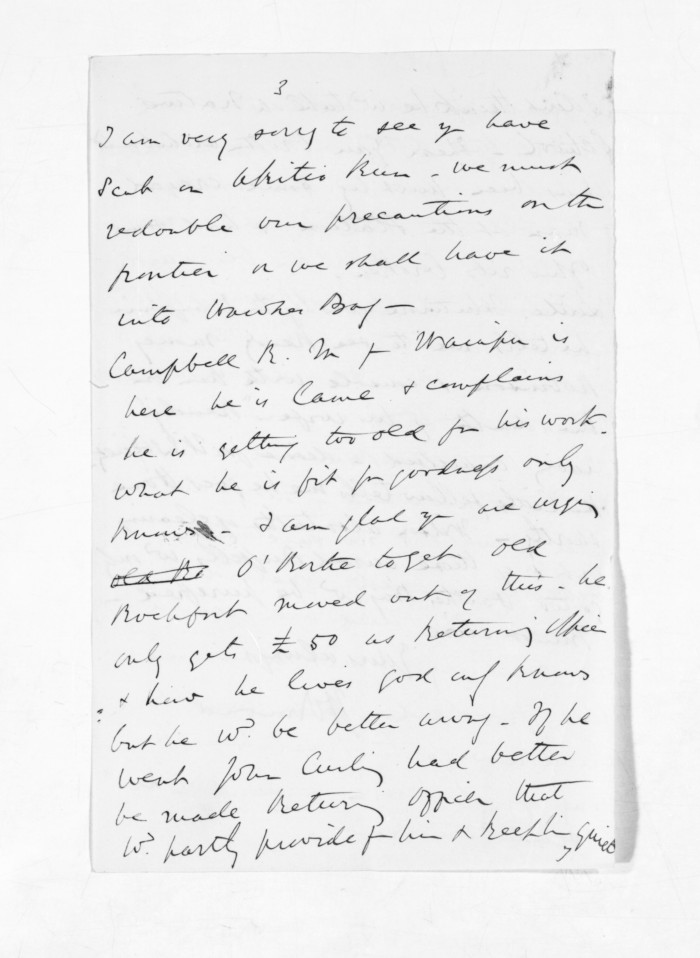 3
I am very sorry to see yr have
Scab on Akitio Run - we must
redouble our precautions on the
frontier or we shall have it
into Hawkes Bay -
Campbell R. M of Waiapu is
here he is lame & complains
he is getting too old for his work -
what he is fit for goodness only
knows - I am glad yr are urging
old Ro O'Rorke to get old
Rochfort moved out of this - he
only gets £50 as Returning Officer
& how he lives god only knows
but he wd. be better away - If he
went John Curling had better
be made Returning Officer that
wd. partly provide for him & keep him quiet